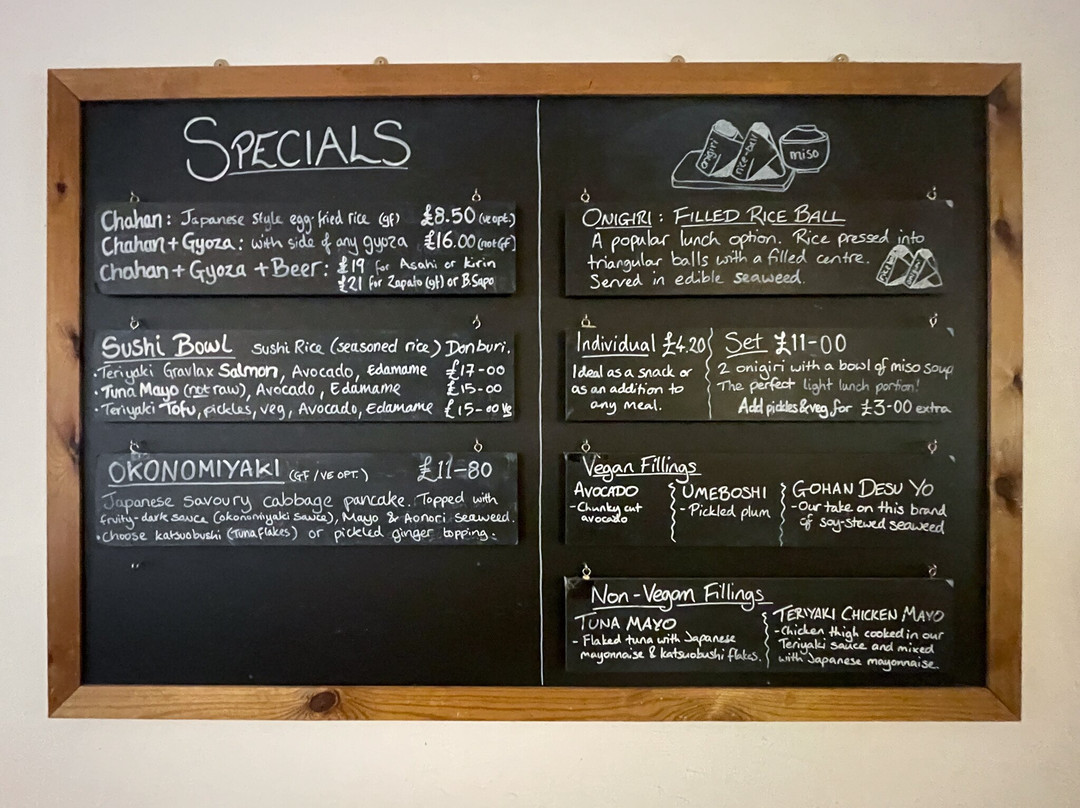 SPECIALS
Chahan: Japanese style egg-fried rice (gf) £8.50 (ve opt.)
Chahan + Gyoza: with side of any gyoza £16.00 (not GF)
Chahan + Gyoza + Beer: £19 for Asahi or Kirin
£21 for Zapato (gf) or B.Sapo
Sushi Bowl sushi Rice (seasoned rice) Donburi.
• Teriyaki Gravlax Salmon, Avocado, Edamame £17-00
• Tuna Mayo (not raw), Avocado, Edamame £15-00
• Teriyaki Tofu, pickles, veg, Avocado, Edamame £15-00 Ve
OKONOMIYAKI (GF/VE OPT.) £11-80
Japanese savoury cabbage pancake. Topped with
fruity-dark sauce (okonomiyaki sauce), Mayo & Aonori seaweed.
• Choose katsuobushi (tuna flakes) or pickled ginger topping.
onigiri
rice-ball
miso
ONIGIRI: FILLED RICE BALL
A popular lunch option. Rice pressed into
triangular balls with a filled centre.
Served in edible seaweed.
Individual £4.20
Ideal as a snack or
as an addition to
any meal.
Set £11-00
2 onigiri with a bowl of miso soup
The perfect light lunch portion!
Add pickles & veg for £3-00 extra
Vegan Fillings
AVOCADO
- Chunky cut
avocado
UMEBOSHI
- Pickled plum
GOHAN DESU YO
- Our take on this brand
of soy-stewed seaweed
Non-Vegan Fillings
TUNA MAYO
- Flaked tuna with Japanese
mayonnaise & katsuobushi flakes.
TERIYAKI CHICKEN MAYO
- Chicken thigh cooked in our
Teriyaki sauce and mixed
with Japanese mayonnaise.